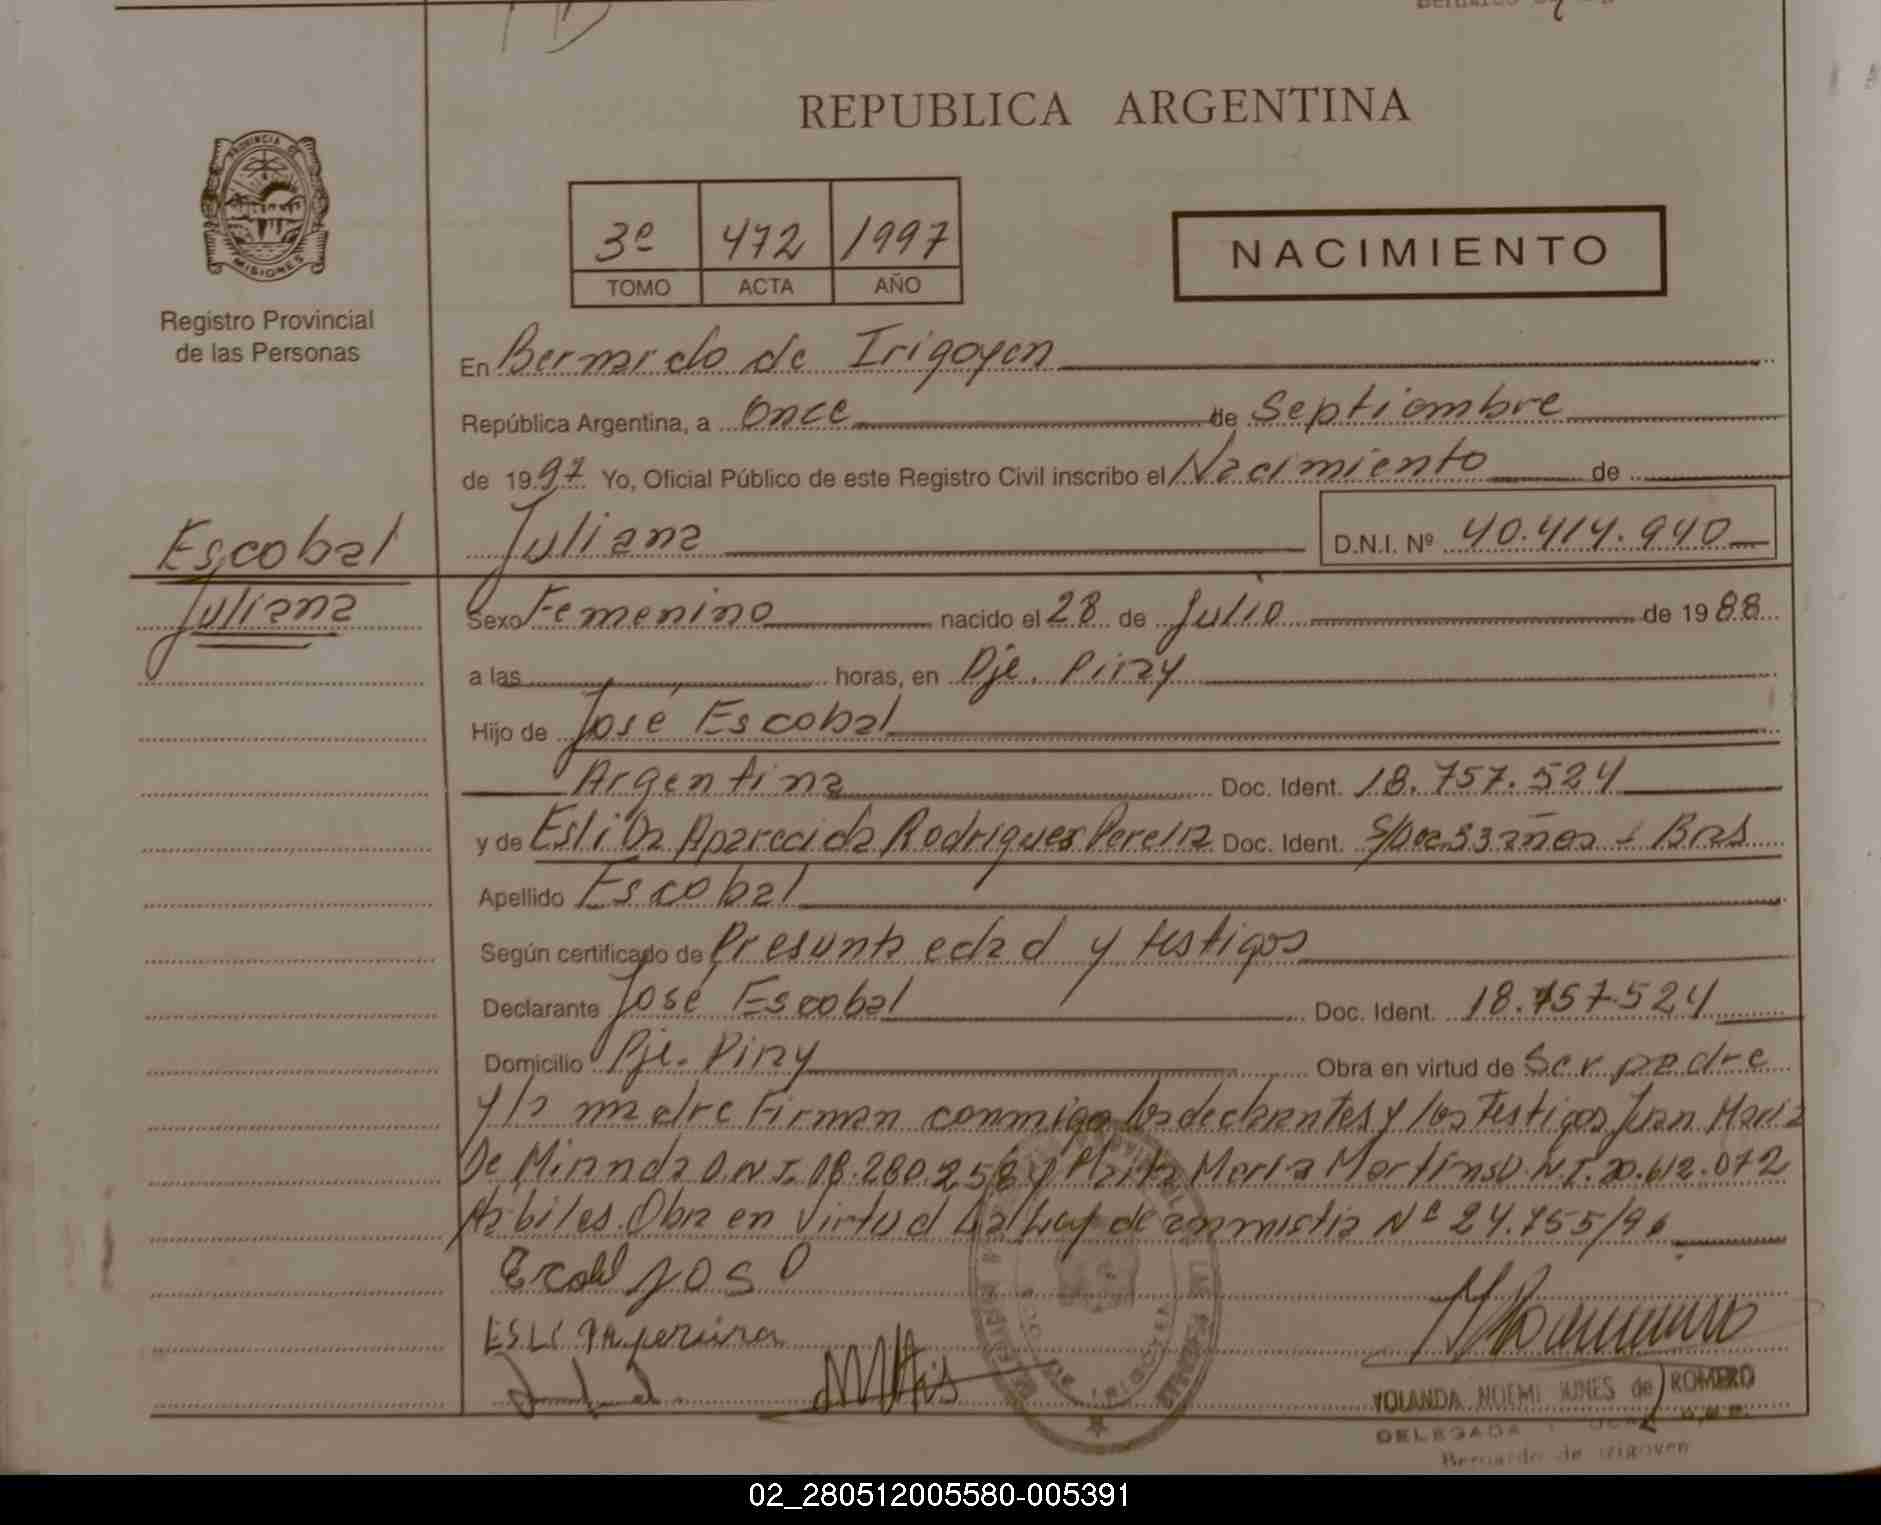 REPUBLICA ARGENTINA
PROVINCIA DE
MISIONES
Registro Provincial
de las Personas
3º 472 1997
TOMO ACTA AÑO
NACIMIENTO
En Bernardo de Irigoyen
República Argentina, a Once de Septiembre
de 1997 Yo, Oficial Público de este Registro Civil inscribo el Nacimiento de
Escobal
Juliana
Juliana D.N.I. Nº 40.414.940
Sexo Femenino nacido el 28 de Julio de 1988
a las horas, en Pje. Piray
Hijo de José Escobal
Argentina Doc. Ident. 18.757.524
y de Esli Da Aparecida Rodrigues Pereira Doc. Ident. S/Doc 33 años - Bras
Apellido Escobal
Según certificado de Presunta edad y testigos
Declarante José Escobal Doc. Ident. 18.757.524
Domicilio Pje. Piray Obra en virtud de Ser padre
y la madre Firman conmigo los declarantes y los Testigos Juan Maria
De Miranda D.N.I. 18.280.258 y Marta Maria Martins D.N.I. 20.612.072
Habiles. Obra en Virtud La Ley de anmistia Nº 24.755/96
Escobal José
ESLI pereira
YOLANDA NOEMI NUNES de ROMERO
DELEGADA
Bernardo de Irigoyen
02_280512005580-005391